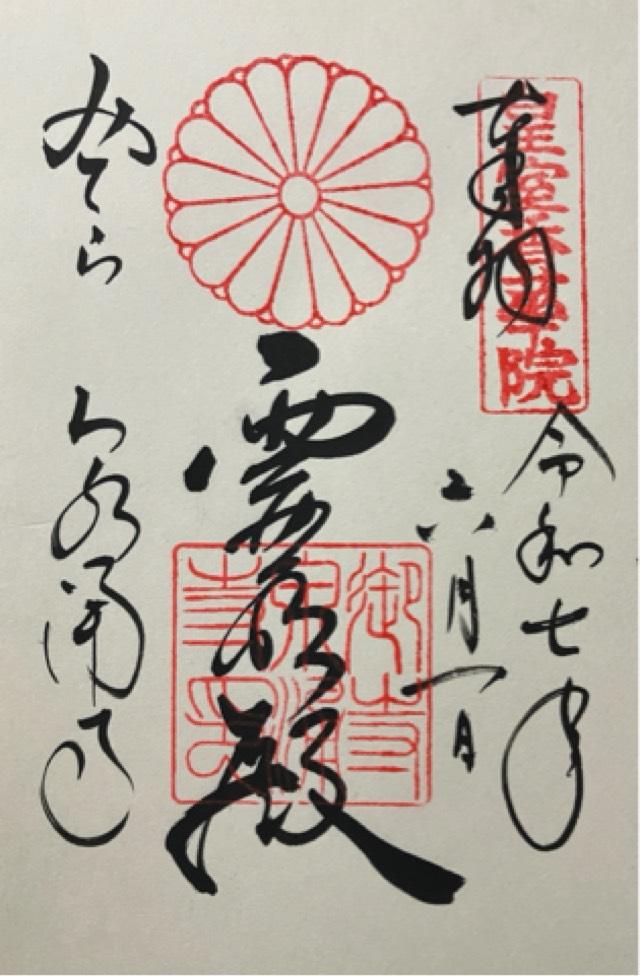 皇室香華院
奉拝
令和七年
六月一日
霊明殿
御寺
泉涌
寺印
みてら
泉涌寺